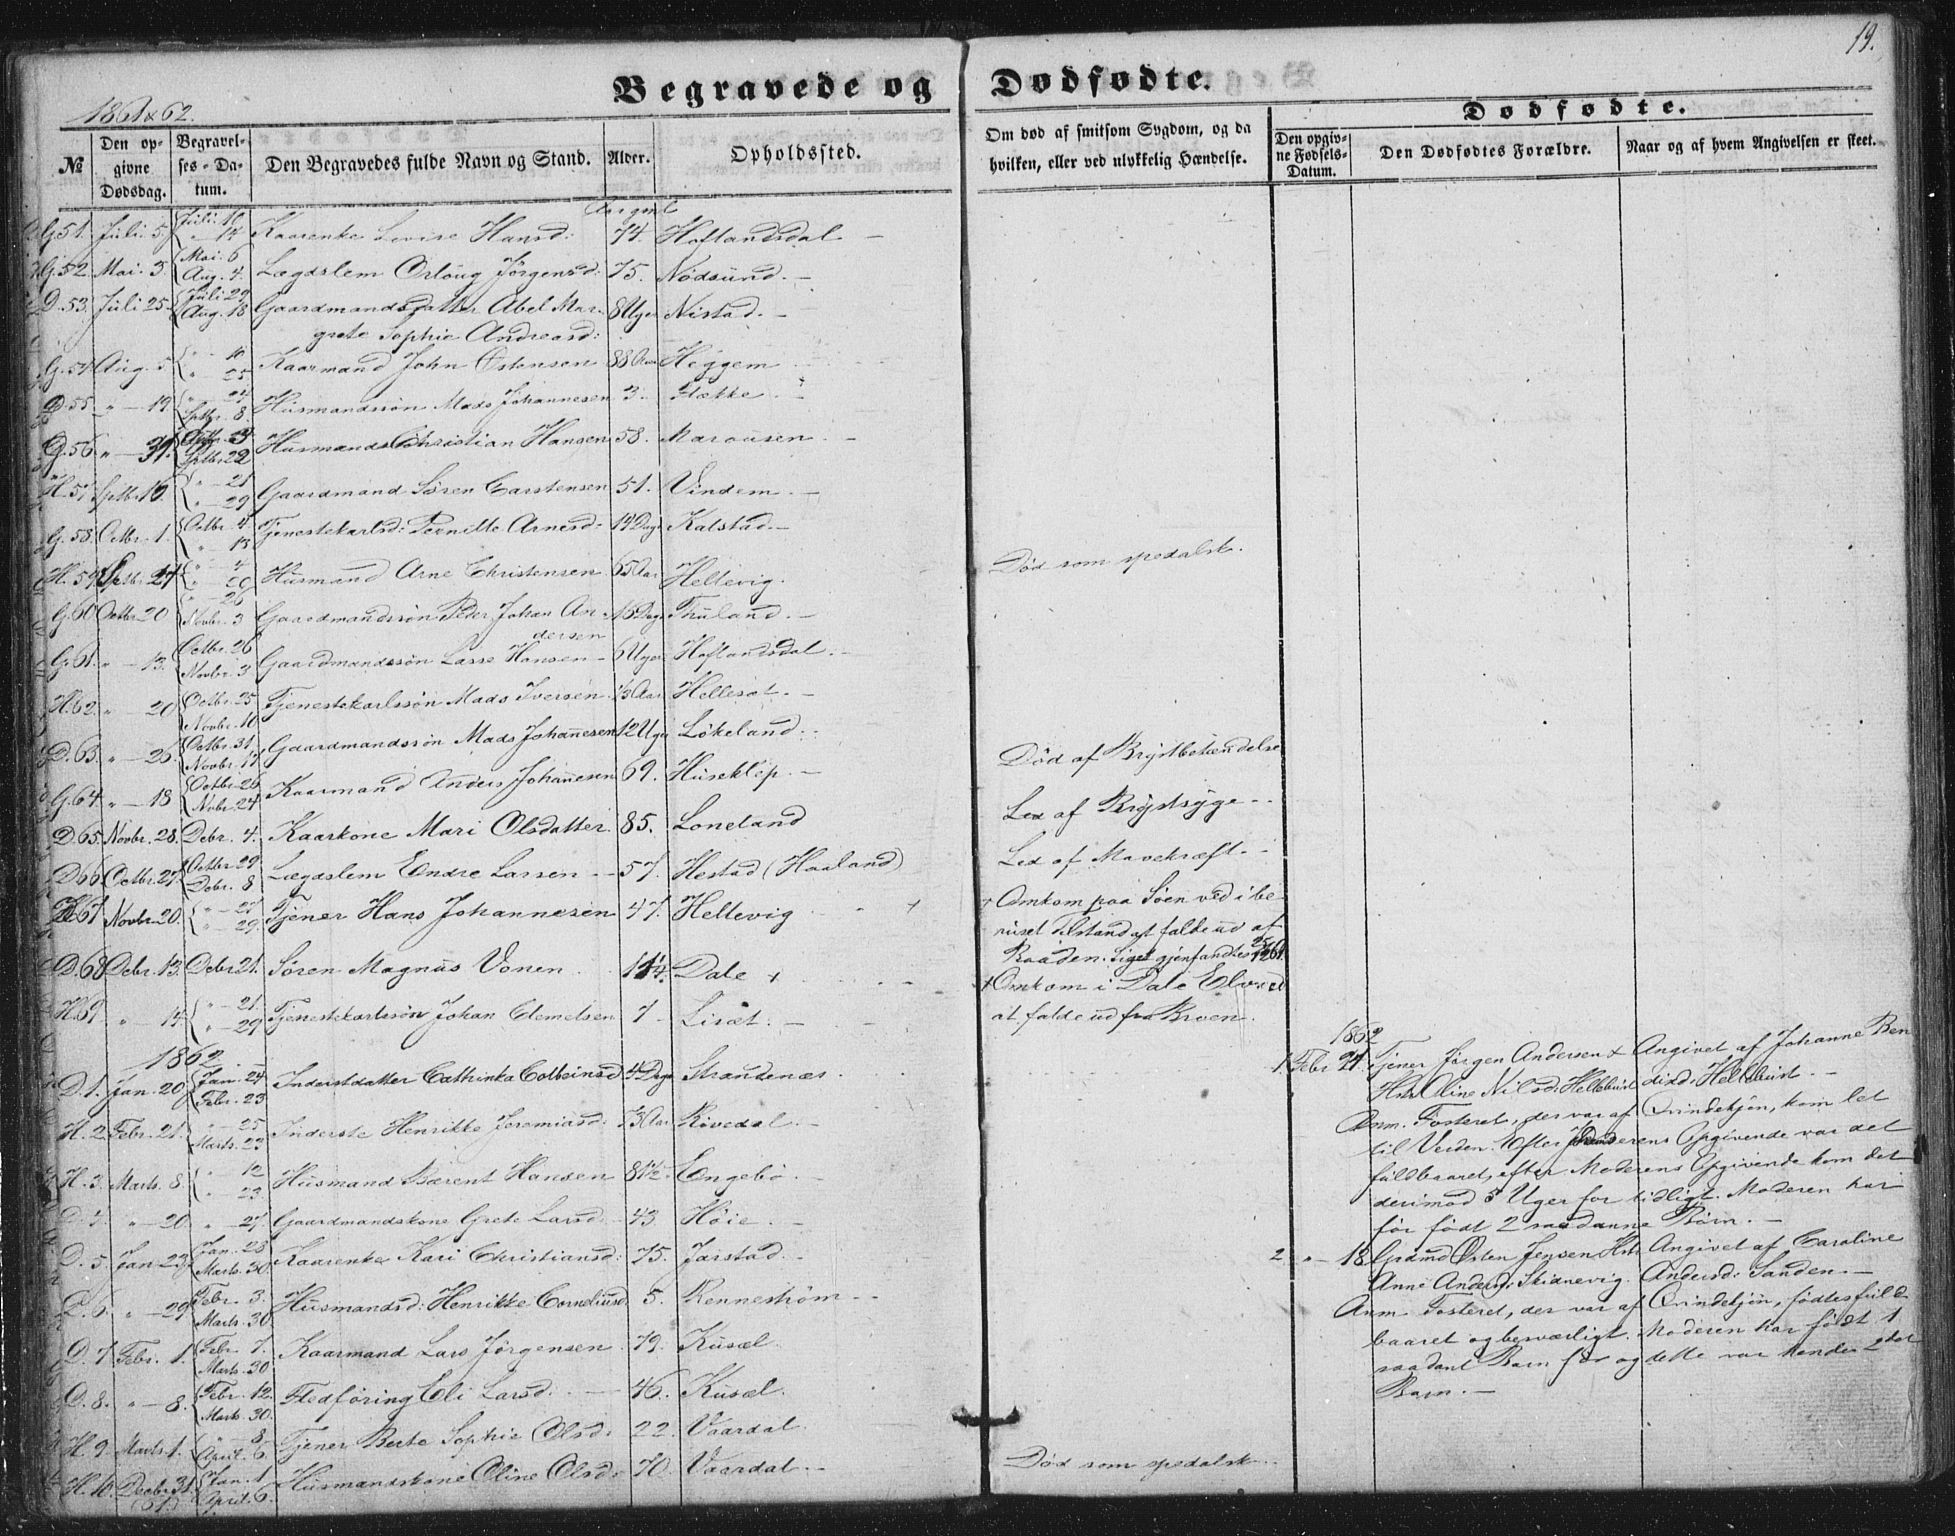 19.
Begravede og Dødfødte.
1861 & 62.
Dødfødte.
№
Den opgivne Dødsdag.
Begravelses-Datum.
Den Begravedes fulde Navn og Stand.
Alder.
Opholdssted.
Om død af smitsom Sygdom, og da hvilken, eller ved ulykkelig Hændelse.
Den opgivne Fødsels-Datum.
Den Dødfødtes Forældre.
Naar og af hvem Angivelsen er skeet.
G. 51. Juli 5 Juli 10 " 14 Kaarenke Lovise Hansd: 74. Hoflandsdal —
G. 52. Mai. 3. Mai. 6 Aug. 4. Lægdslem Orloug Jørgensd: 75. Nödsund. —
D. 53. Juli 25 Juli 29 Aug. 18 Gaardmandsdatter Abel Mar- 8 Uger Nistad. —
grete Sophie Andreasd:
G. 54 Aug. 5 " 10 " 25 Kaarmand John Østensen 88 Aar Heggem
D. 55. " — 19 " 24 Septbr. 8 Husmandssön Mads Johannesen 3. Flekke
G. 56 " — 31. Septbr. 22 Husmand Christian Hansen 58. Marousen. —
H. 57 Septbr. 16 " — 21 " — 29 Gaardmand Søren Carstensen 51. Vindem. —
G. 58. Octbr. 1. Octbr. 4. " — 13 Tjenestekarlsd: Pernille Arnesd: 14 Dage Kalstad. —
H. 59 Septbr. 27 " — 4 " — 20 Husmand Arne Christensen 65 Aar Hellevig. Död som spedalsk.
G. 60 Octbr. 20 " — 26 Novbr. 3 Gaardmandssön Peder Johan An- 16 Dage Thuland. —
dersen
G. 61. " — 13. Octbr. 26 Novbr. 3 Gaardmandssön Lasse Hansen — 6 Uger Hoflandsdal. —
H. 62. " — 20 Octbr. 25 Novbr. 10 Tjenestekarlssön Mads Iversen ½ Aar Hellesæt. —
D. 63. " — 26. Octbr. 31. Novbr. 17. Gaardmandssøn Mads Johannesen 12 Uger Lökeland. — Död af Brystbetændelse
G. 64. " — 18 Octbr. 26 Novbr. 24. Kaarmand Anders Johannesen 69. Huseklep. — Led af Brystsyge. —
D. 65. Novbr. 28. Debr. 4. Kaarkone Mari Olsdatter 85. Loneland
D. 66 Octbr. 27. Octbr. 29 Debr. 8 Lægdslem Endre Larsen — 57. Hestad (Haaland) Led af Mavekræft. —
67 Novbr. 20. " — 27 " — 29. Tjener Hans Johannesen 47. Hellevig + + Omkom paa Söen ved i be-
ruset Tilstand at falde ud af
Baaden. Liget gjenfandtes
D. 68 Debr. 13. Debr. 21. Søren Magnus Vonen 14. Dale + + Omkom i Dale Elv ved
at falde ud fra Broen.
H. 69 " — 14. " — 21. " — 29 Tjenestekarlssön Johan Clemetsen 7 Lisæt. —
1862.
D. 1. Jan. 20 Jan. 24 Febr. 23 Inderstdatter Cathinka Colbeinsd 4 Dage Strandenæs
H. 2. Febr. 21. " — 25 Marts. 23 Inderste Henrikke Jeremiasd: 73 Aar Rövedal. —
H. 3. Marts. 8. " 12 " 23. Husmand Bærent Hansen 81½. Engebö. —
D. 4. " — 20. " — 27. Gaardmandskone Grete Larsd. 43. Höie. —
D. 5. Jan. 23 Jan. 28 Marts. 30. Kaarenke Kari Christiansd: 75. Jarstad. —
D. 6. " — 29 Febr. 3. Marts. 30. Husmandsd: Henrikke Corneliusd 5. Rennestrøm —
D. 7. Febr. 1. Febr. 7. Marts. 30 Kaarmand Lars Jørgensen 79. Kusæl.
D. 8. " — 8. Febr. 12. Marts. 30. Fledføring Eli Larsd. — 46. Kusæl.
H. 9. Marts. 1. " — 8. April. 6. Tjener Berte Sophie Olsd: 22. Vaardal
H. 10. Decbr. 31. (61.) Jan. 1 April. 6. Husmandskone Oline Olsd: 70. Vaardal. — Död som spedalsk.
1862
1 Febr 21. Tjener Jørgen Andersen & Angivet af Johanne Ben
Hst. Oline Nilsd: Hellebust. disd: Hellebust. —
Anm. Fosteret, der var af Qvindekjön, kom let
til Verden. Efter Opgivende var det
fuldbaaret, efter Moderens Opgivende kom det
derimod 5 Uger for tidligt. Moderen har
før født 2 saadanne Börn. —
2 " — 18 Grdmd Østen Jensen Hst. Angivet af Caroline
Anne Andersd: Skidnevig. Andersd: Sanden. —
Anm. Fosteret, der var af Qvindekjön, fødtes fuld-
baaret og besværligt. Moderen har født 1
saadant Barn før og dette var hendes 2det
Barn. —